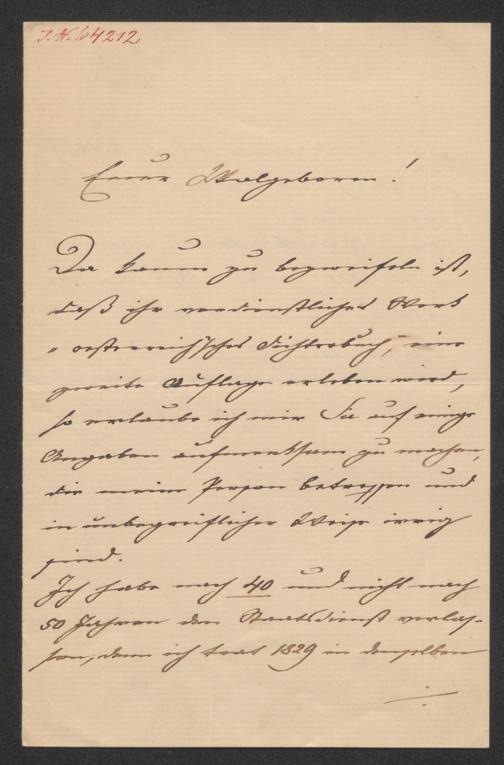 J. N. 64212
Euer Wolgeboren!
Da kaum zu bezweifeln ist,
daß ihr verdienstliches Werk
„oesterreich'sches Dichterbuch", eine
zweite Auflage erleben wird,
so erlaube ich mir Sie auf einige
Angaben aufmerksam zu machen,
die meine Person betreffen und
in unbegreiflicher Weise irrig
sind.
Ich habe nach 40 und nicht nach
50 Jahren den Staatsdienst verlas-
sen, denn ich trat 1829 in denselben